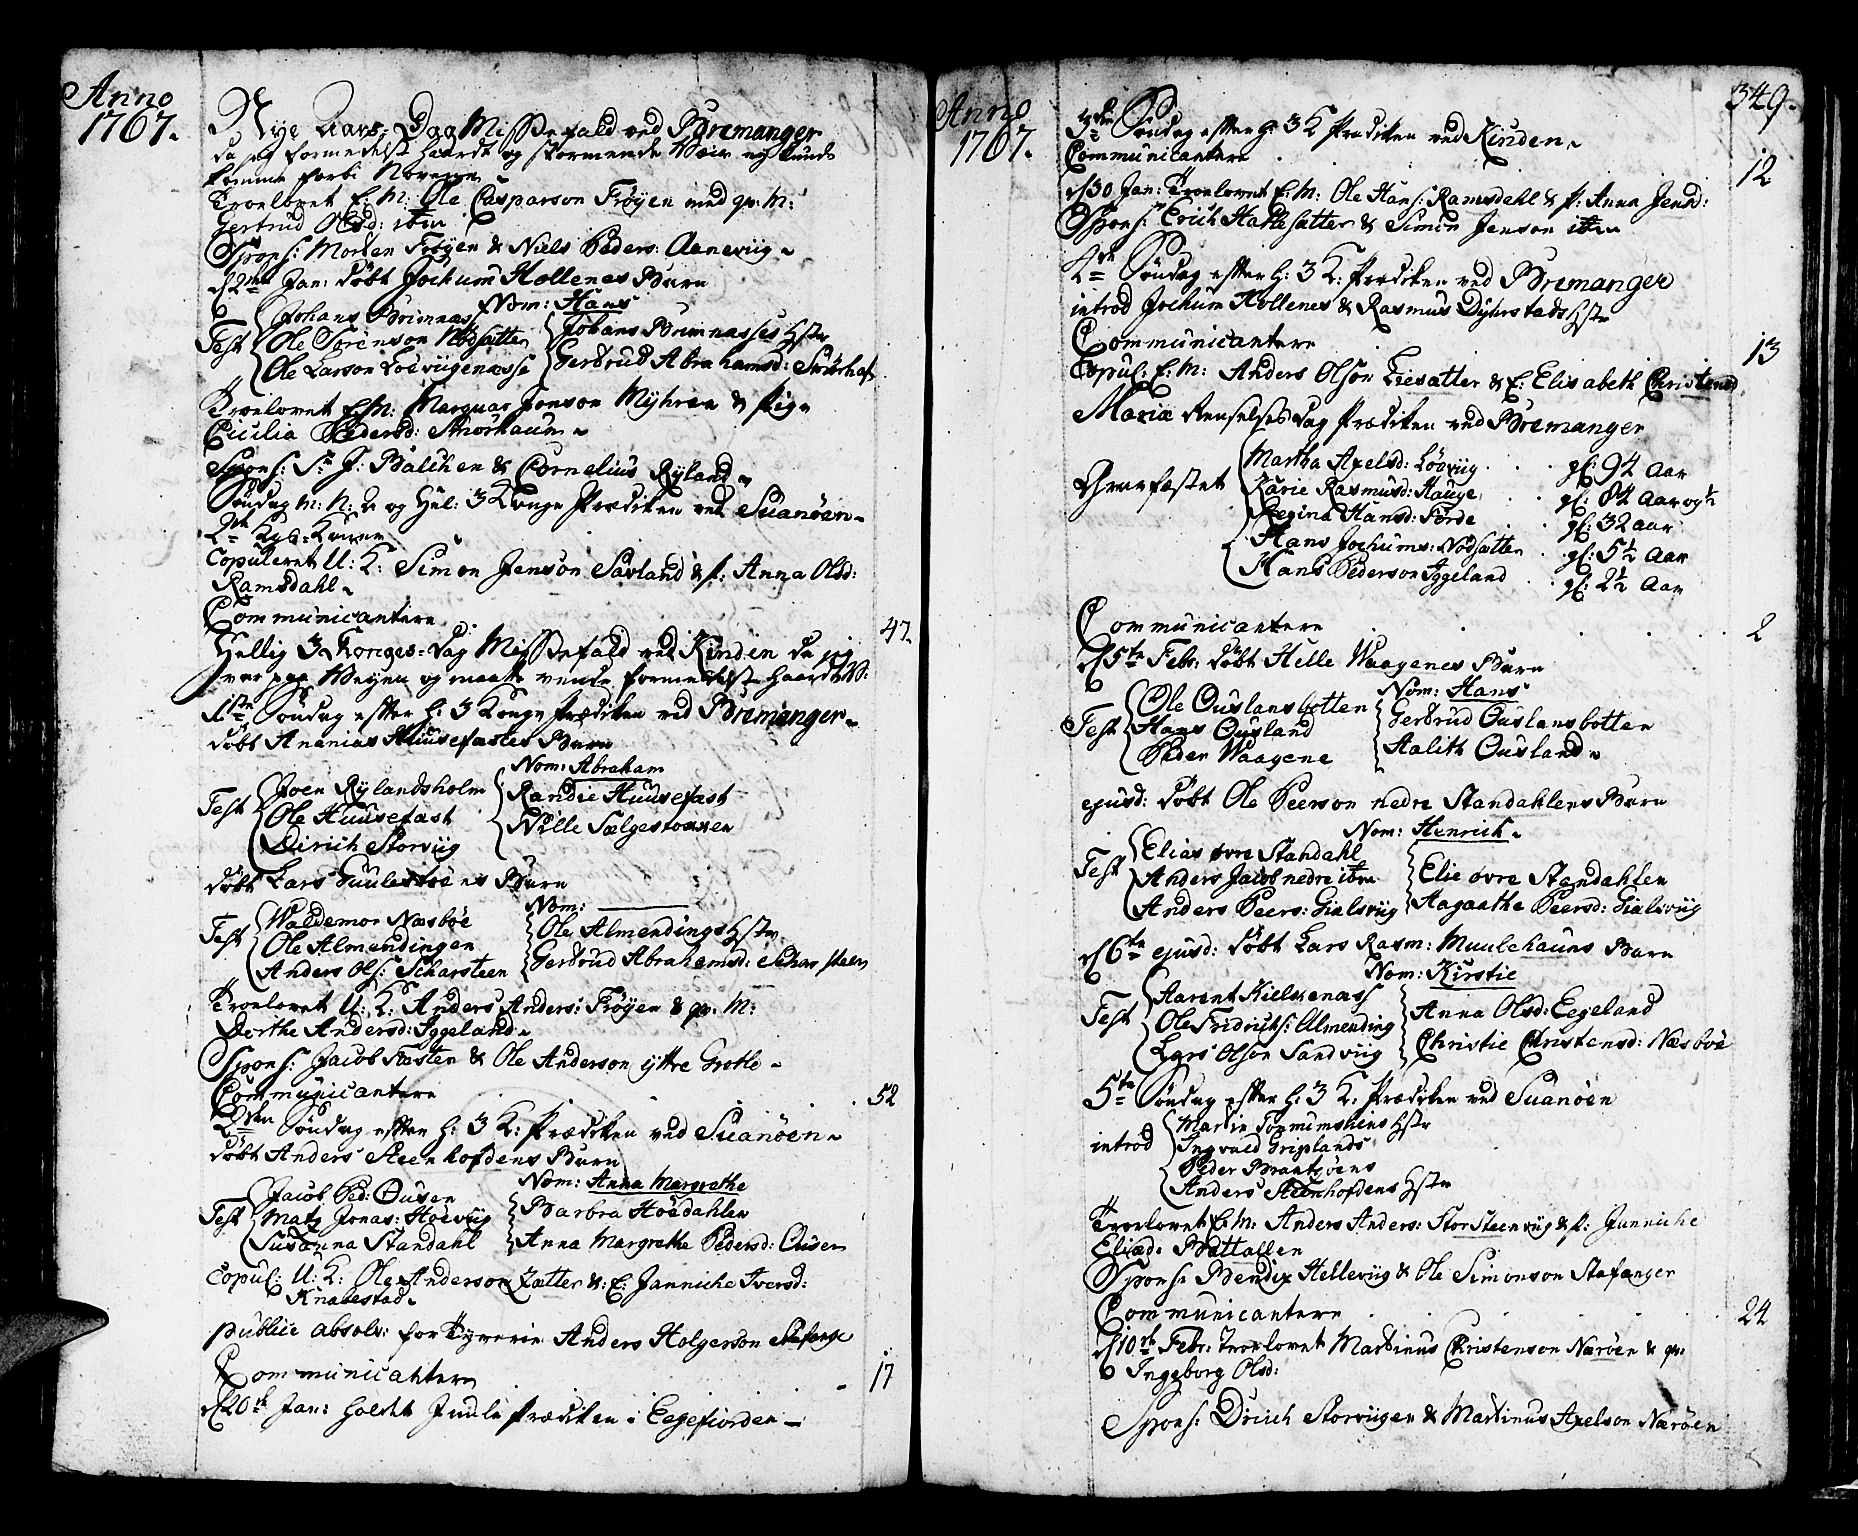 Anno
1767.
Nye Aars-Dag Missefald ved Bremanger
da jeg formedelst haardt og stormende Veir ey kunde
komme forbi
Troelovet E: M: Ole Casparson Frøyen med qv: M:
Gertrud Olsd: ibm
Spons: Morten Frøyen & Niels Peders: Aaneviig
d 2den Jan: døbt Jochum Hollenes Barn
Nom: Hans
Test Johans Brimnæs
Ole Sørenson Nødsætter
Ole Larson Løeviigenæsse
Johans Brimnæsses Hstr
Gertrud Abrahamsd:
Troelovet E: M: Marqvar Jonson Myhren & Pige
Cicilia Pedersd: Smørhaum
Spons: Sr J: Balchen & Cornelius Ryland
Søndag m: N: A og Hel: 3 Konge Prædiken ved Suanøen
Copuleret U: K: Simon Jenson Savland & p: Anna Olsd:
Ramsdahl
Communicantere 47.
Hellig 3 Konges-Dag Missefald ved Kinden da jeg
var paa Veyen og maatte vende formedelst haardt V:
1ste Søndag efter H: 3 Konge Prædiken ved Bremanger
døbt Ananias Huusefastes Barn
Nom: Abraham
Test Joen Rylandsholm
Ole Huusefast
Dirich Storviig
Randie Huusefast
Nille Sælgestonnen
døbt Lars Guulestøens Barn
Nom: ———
Test Waldemor Næsbøe
Ole Almendingen
Anders Ols: Scharsteen
Ole Almendings Hstr
Gertrud Abrahamsd: Scharsteen
Troelovet U: K: Anders Anders: Frøyen & qv: M:
Dorthe Andersd: Iggeland
Spons: Jacob Fasten & Ole Anderson yttre Grotle
Communicantere 52
2den Søndag efter H: 3 K: Prædiken ved Suanøen
døbt Anders Steenhofdens Barn
Nom: Anna Margrethe
Test Jacob Ped: Ousen
Mats Jonas: Hoeviig
Susanna Standahl
Barbra Hoedahlen
Anna Margrethe Pedersd: Ousen
Copul: U: K: Ole Anderson Zætter & E: Jannicke Iversd:
Knabestad
publice absolv: for Tyverie Anders Holgerson
Communicantere 17
d 20de Jan: holdt Juule Prædiken i Eegefiorden

Anno
1767.
349.
3die Søndag efter H: 3 K Prædiken ved Kinden
Communicantere 12
d 30 Jan: Troelovet E: M: Ole Hans: Ramsdahl & p: Anna Jensd:
Spons: Erich Hatlesætter & Simon Jenson ibm
4de Søndag efter H: 3 K: Prædiken ved Bremanger
introd Jochum Hollenes & Rasmus Dyhrstads Hstr
Communicantere 13
Copul: E: M: Anders Olson Liesætter & E: Elisabeth Christensd
Mariæ Renselses Dag Prædiken ved Bremanger
Gravfæstet Martha Axelsd: Løeviig gl: 94 Aar
Karie Rasmusd: Hauge gl: 84 Aar og ½
Regina Hansd: Førde gl: 32 Aar
Hans Jochums: Nødsætter gl: 5½ Aar
Hans Pederson Iggeland gl: 2½ Aar
Communicantere 2
d 5te Febr: døbt Helle Waagenes Barn
Nom: Hans
Test Ole Ouslansbotten
Hans Ousland
Peder Waagene
Gertrud Ouslansbotten
Aalith Ousland
ejusd: døbt Ole Peerson nedre Standahlens Barn
Nom: Henrich
Test Elias øvre Standahl
Anders Jacob nedre ibm
Anders Peers: Gialsviig
Elie øvre Standahlen
Aagaathe Peersd: Gialsviig
d 6te ejusd: døbt Lars Rasm: Muulehauns Barn
Nom: Kirstie
Test Aarent Kielkenæss
Ole Fridrichs: Almending
Lars Olson Sandviig
Anna Olsd: Eegeland
Christie Christensd: Næsbøe
5te Søndag efter H: 3 K: Prædiken ved Suanøen
introd Martin Tormimsheins Hstr
Ingvald Griplands
Peder Brantsøens
Anders Steenhofdens Hstr
Troelovet E: M: Anders Anders: Storsteenviig & p: Jannicke
Eliæd: Battalden
Spons: Bendix Helleviig & Ole Simonson Stafanger
Communicantere 24
d 10de Febr: Troelovet Martinus Christenson Nærøen & qv:
Ingeborg Olsd:
Spons: Dirich Storviigen & Martinus Axelson Nærøen